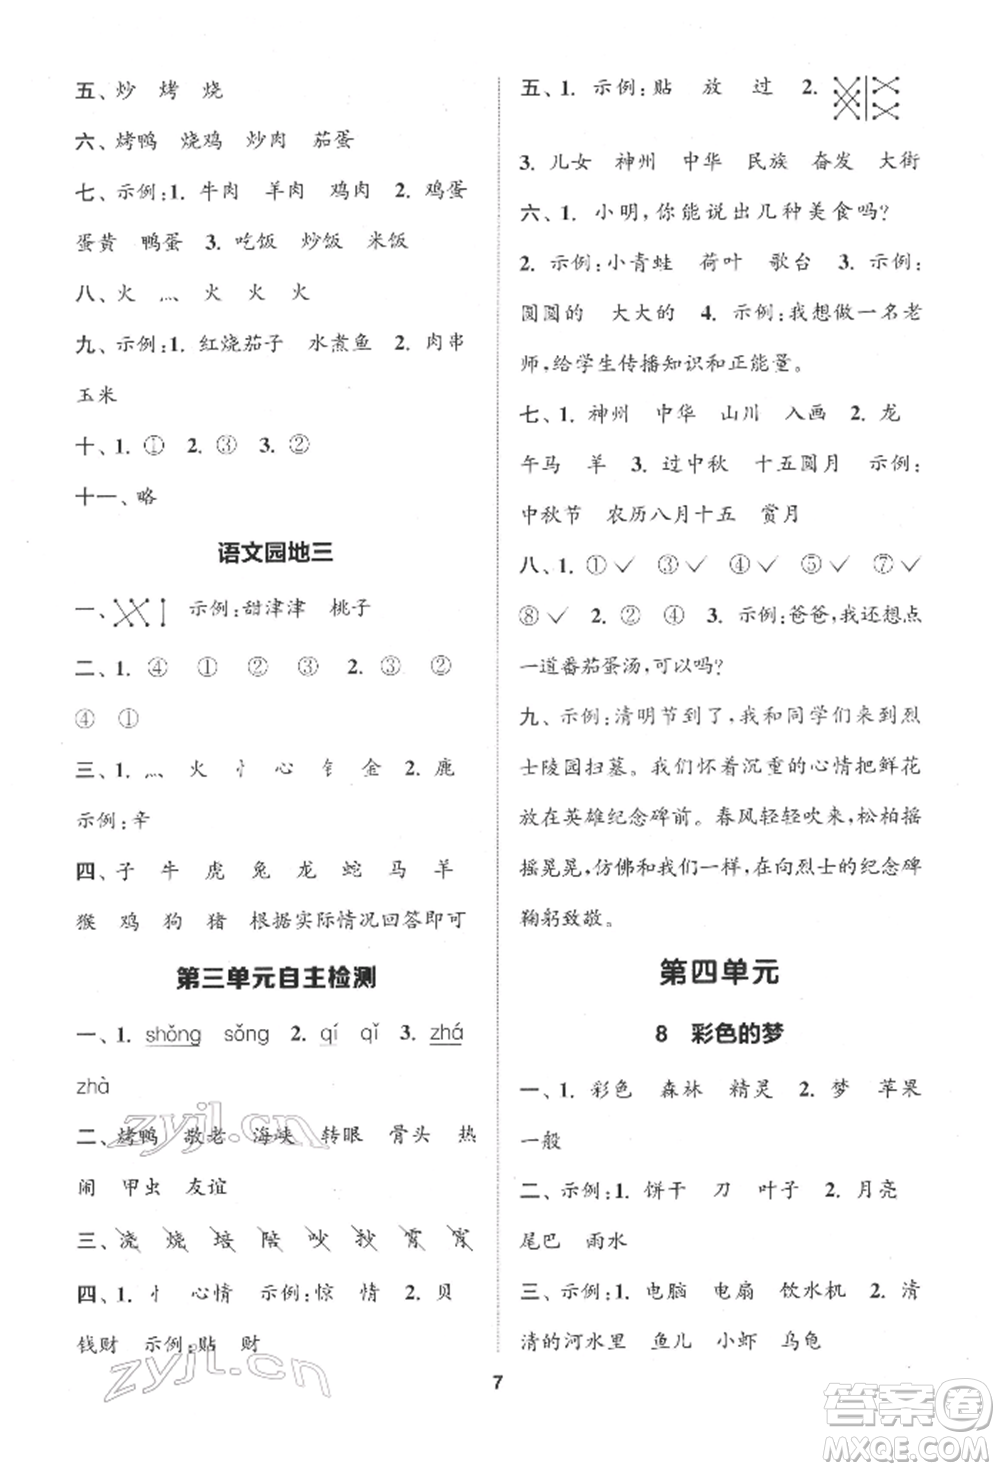 五、炒 烤 烧
六、烤鸭 烧鸡 炒肉 茄蛋
七、示例:1. 牛肉 羊肉 鸡肉 2. 鸡蛋
蛋黄 鸭蛋 3. 吃饭 炒饭 米饭
八、火 灬 火 火 火
九、示例:1. 红烧茄子 水煮鱼 2. 肉串
玉米
十、1. ① 2. ③ 3. ②
十一、略
语文园地三
一、 示例:甜津津 桃子
二、1. ④ ① ② ③ 2. ③ ②
④ ①
三、1. 灬 火 忄 心 钅 金 2. 鹿
示例:辛
四、子 牛 虎 兔 龙 蛇 马 羊
猴 鸡 狗 猪 根据实际情况回答即可
第三单元自主检测
一、1. shǒng sǒng 2. qí qǐ 3. zhá
zhà
二、烤鸭 敬老 海峡 转眼 骨头 热
闹 甲虫 友谊
三、浇 烧 培 陪 吵 抄 宵
四、1. 忄 心情 示例:惊 情 2. 贝
钱财 示例:贴 财
五、1. 示例:贴 放 过 2.
3. 儿女 神州 中华 民族 奋发 大街
六、1. 小明,你能说出几种美食吗?
2. 示例:小青蛙 荷叶 歌台 3. 示例:
圆圆的 大大的 4. 示例:我想做一名老
师,给学生传播知识和正能量。
七、1. 神州 中华 山川 入画 2. 龙
午马 羊 3. 过中秋 十五圆月 示例:
中秋节 农历八月十五 赏月
八、1. ①✓ ③✓ ④✓ ⑤✓ ⑦✓
⑧✓ 2. ② ④ 3. 示例:爸爸,我还想点
一道番茄蛋汤,可以吗?
九、示例:清明节到了,我和同学们来到烈
士陵园扫墓。我们怀着沉重的心情把鲜花
放在英雄纪念碑前。春风轻轻吹来,松柏摇
摇晃晃,仿佛和我们一样,在向烈士的纪念碑
鞠躬致敬。
第四单元
8 彩色的梦
一、1. 彩色 森林 精灵 2. 梦 苹果
一般
二、示例:1. 饼干 刀 叶子 2. 月亮
尾巴 雨水
三、示例:1. 电脑 电扇 饮水机 2. 清
清的河水里 鱼儿 小虾 乌龟
7
zyjl.cn
zyjl.cn
答案圈
MXQE.COM